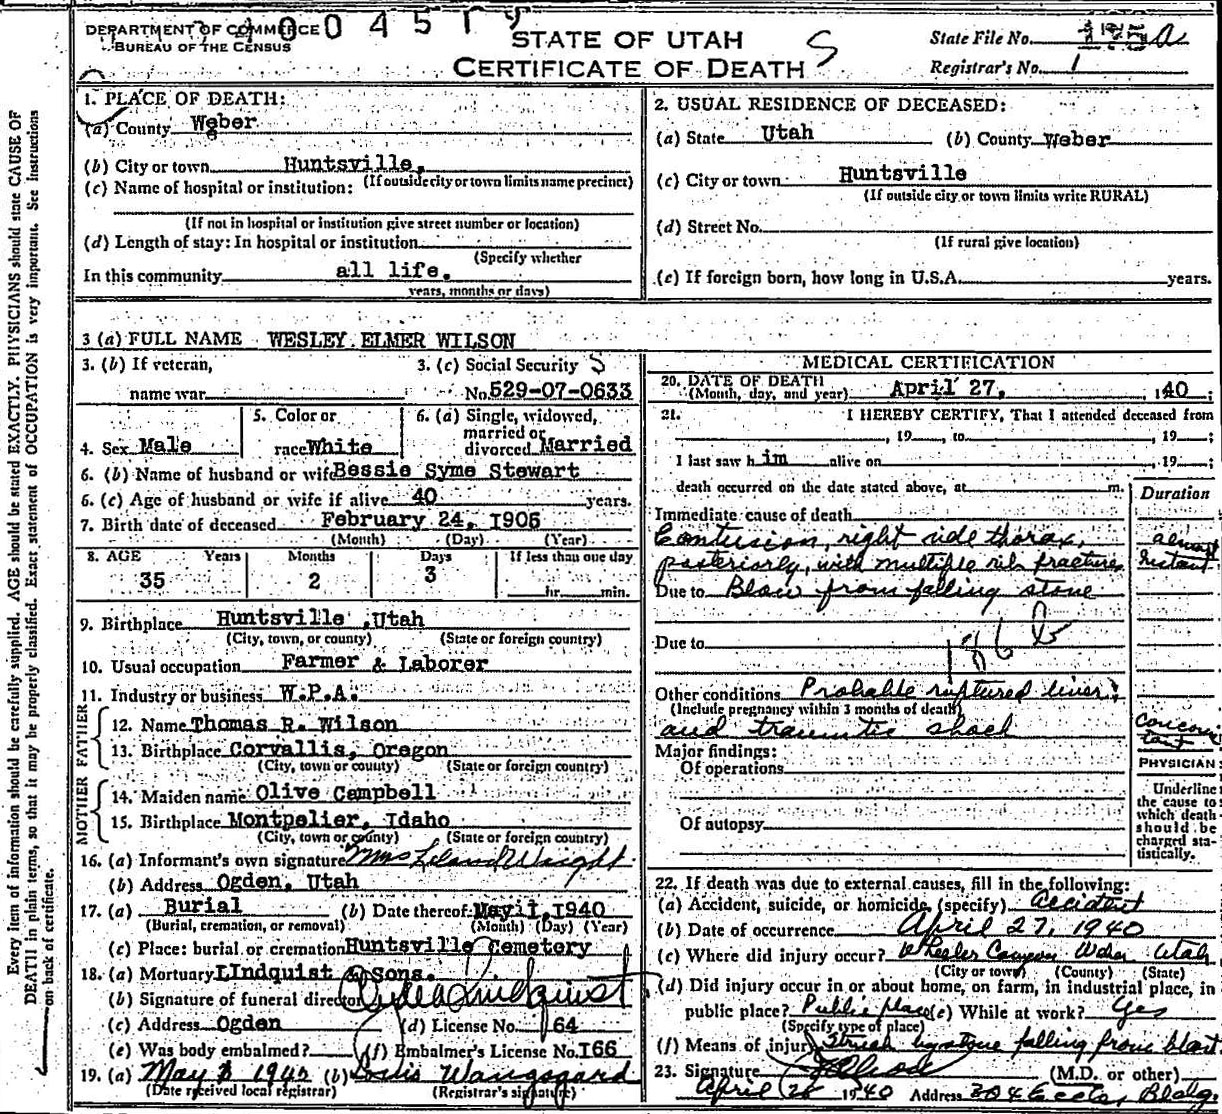 DEPARTMENT OF COMMERCE
BUREAU OF THE CENSUS
STATE OF UTAH
CERTIFICATE OF DEATH
S
State File No. a
Registrar's No. 1
Every item of information should be carefully supplied. AGE should be stated EXACTLY. PHYSICIANS should state CAUSE OF
DEATH in plain terms, so that it may be properly classified. Exact statement of OCCUPATION is very important. See instructions
on back of certificate.
1. PLACE OF DEATH:
(a) County Weber
(b) City or town Huntsville,
(If outside city or town limits name precinct)
(c) Name of hospital or institution:
(If not in hospital or institution give street number or location)
(d) Length of stay: In hospital or institution
(Specify whether
In this community all life.
years, months or days)
2. USUAL RESIDENCE OF DECEASED:
(a) State Utah (b) County Weber
(c) City or town Huntsville
(If outside city or town limits write RURAL)
(d) Street No.
(If rural give location)
(e) If foreign born, how long in U.S.A. years.
3 (a) FULL NAME WESLEY ELMER WILSON
3. (b) If veteran,
name war
3. (c) Social Security S
No. 529-07-0633
4. Sex Male
5. Color or
race White
6. (a) Single, widowed,
married or
divorced Married
6. (b) Name of husband or wife Bessie Syme Stewart
6. (c) Age of husband or wife if alive 40 years.
7. Birth date of deceased February 24, 1905
(Month) (Day) (Year)
8. AGE Years Months Days If less than one day
35 2 3 hr. min.
9. Birthplace Huntsville ,Utah
(City, town, or county) (State or foreign country)
10. Usual occupation Farmer & Laborer
11. Industry or business W.P.A.
FATHER
12. Name Thomas R. Wilson
13. Birthplace Corvallis, Oregon
(City, town or county) (State or foreign country)
MOTHER
14. Maiden name Olive Campbell
15. Birthplace Montpelier, Idaho
(City, town or county) (State or foreign country)
16. (a) Informant's own signature Mrs Leland Wright
(b) Address Ogden, Utah
17. (a) Burial (b) Date thereof May 1, 1940
(Burial, cremation, or removal) (Month) (Day) (Year)
(c) Place: burial or cremation Huntsville Cemetery
18. (a) Mortuary LIndquist & Sons.
(b) Signature of funeral director Lindquist
(c) Address Ogden (d) License No. 64
(e) Was body embalmed? (f) Embalmer's License No. I66
19. (a) May 1940 (b) Louis Wangsgard
(Date received local registrar) (Registrar's signature)
MEDICAL CERTIFICATION
20. DATE OF DEATH
(Month, day, and year) April 27, 1940;
21. I HEREBY CERTIFY, That I attended deceased from
, 19 , to , 19 ;
I last saw h im alive on , 19 ;
death occurred on the date stated above, at m.
Duration
Immediate cause of death
Contusion, right side thorax, almost
posteriorly, with multiple rib fractures instant
Due to Blow from falling stone
Due to 186
Other conditions Probable ruptured liver,
(Include pregnancy within 3 months of death)
and traumatic shock concomitant
Major findings:
Of operations
Of autopsy
PHYSICIAN:
Underline
the cause to
which death
should be
charged sta-
tistically.
22. If death was due to external causes, fill in the following:
(a) Accident, suicide, or homicide, (specify) accident
(b) Date of occurrence April 27, 1940
(c) Where did injury occur? Wheeler Canyon Weber Utah
(City or town) (County) (State)
(d) Did injury occur in or about home, on farm, in industrial place, in
public place? Public place (e) While at work? Yes
(Specify type of place)
(f) Means of injury Struck by stone falling from blast
23. Signature (M.D. or other)
April 1940 Address 304 Eccles Bldg.